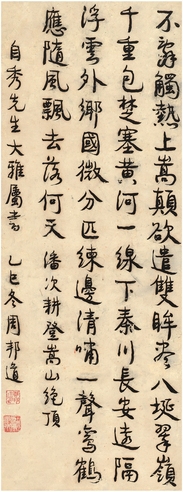 不辭觸熱上嵩顛欲遣雙眸豁八埏翠嶺
千重包楚塞黃河一線下秦川長安遠隔
浮雲外鄉國微分匹練邊清嘯一聲鸞鶴
應隨風飄去落何天 潘次耕登嵩山絕頂
自秀先生大雅屬書 乙巳冬周邦道